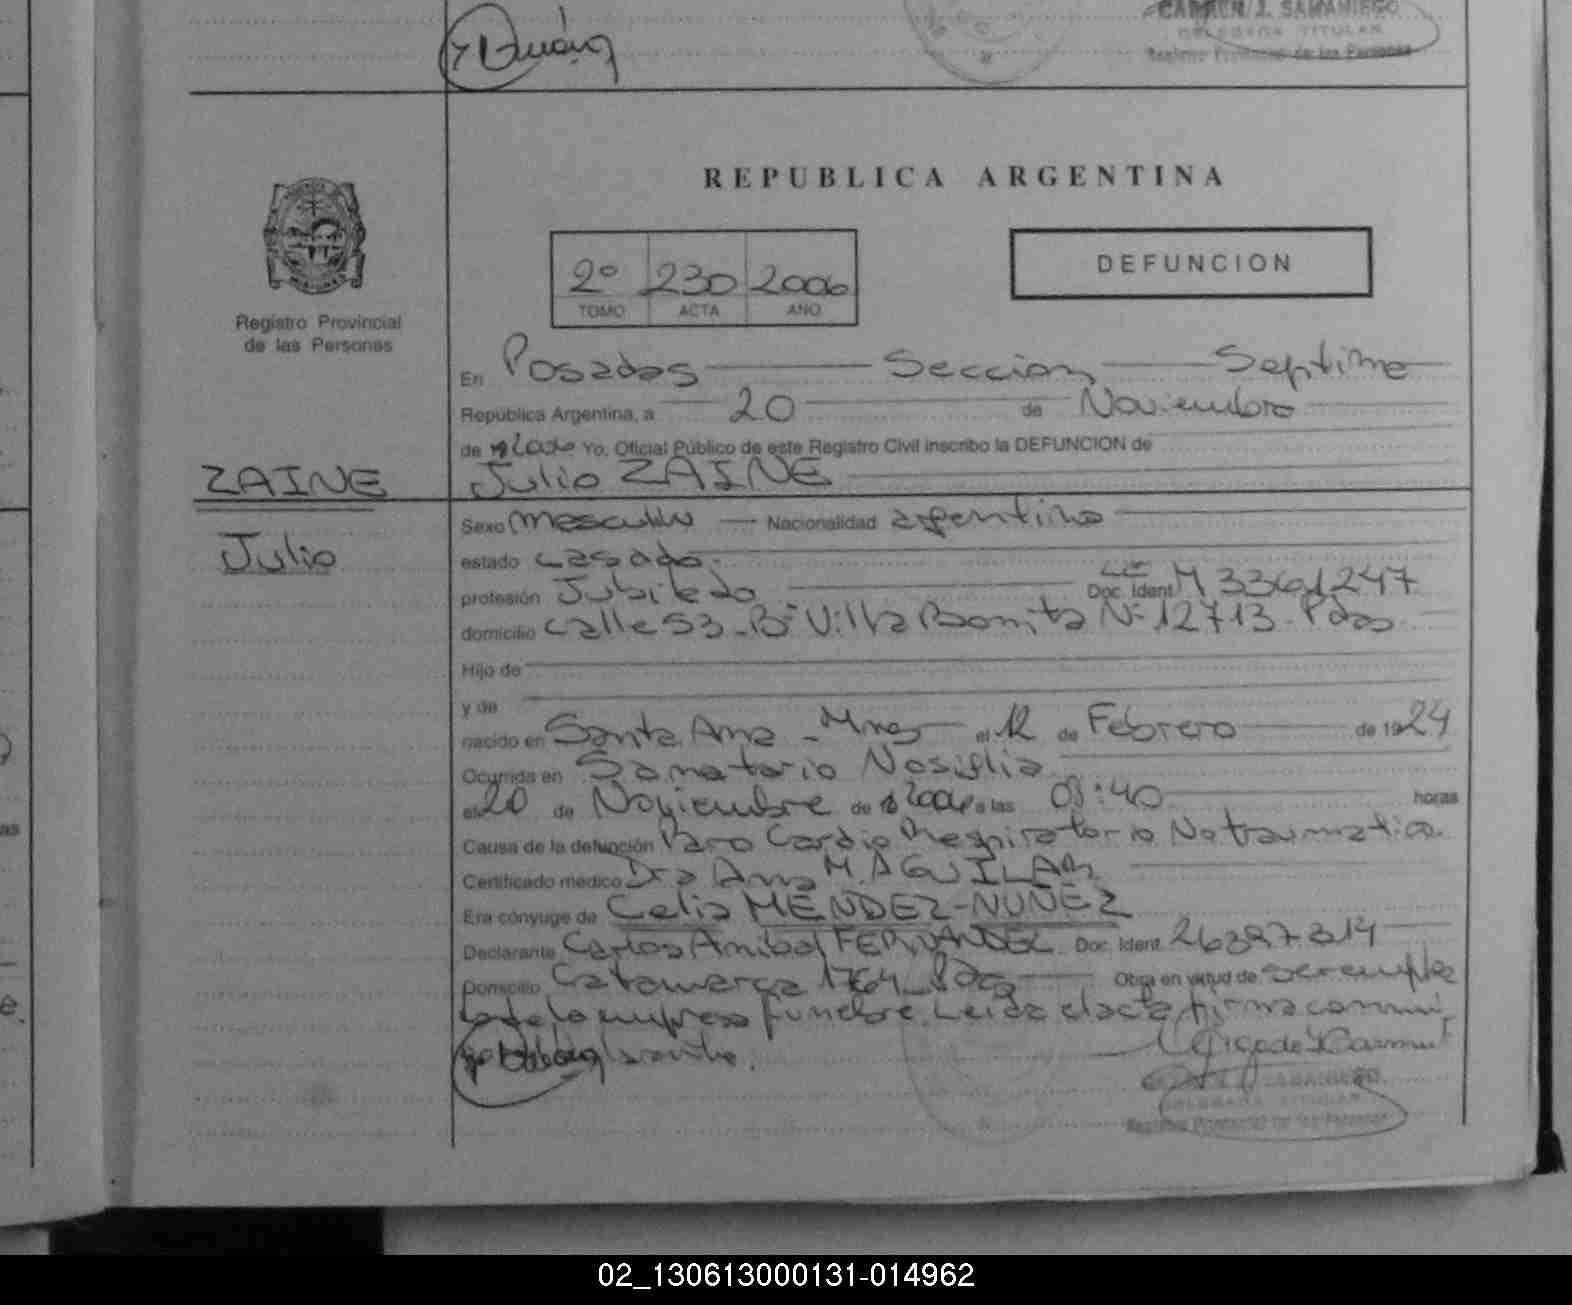 CARMEN J. SAMANIEGO
DELEGADA TITULAR
Registro Provincial de las Personas
REPUBLICA ARGENTINA
2º 230 2006
TOMO ACTA AÑO
DEFUNCION
Registro Provincial
de las Personas
En Posadas Seccion Septima
República Argentina, a 20 de Noviembre
de 2006 Yo, Oficial Público de este Registro Civil inscribo la DEFUNCION de
ZAINE Julio ZAINE
Sexo Masculino Nacionalidad argentino
Julio
estado casado
profesión Jubilado Doc. Ident M 3361247
domicilio calle 53 - Bº Villa Bonita Nº 12713 - Pdas
Hijo de
y de
nacido en Santa Ana - Mnes el 12 de Febrero de 1924
Ocurrida en Sanatorio Nosiglia
el 20 de Noviembre de 2006 a las 03:40 horas
Causa de la defunción Paro Cardio Respiratorio No traumatico.
Certificado medico Dra Ana M. AGUILAR
Era cónyuge de Celia MENDEZ-NUÑEZ
Declarante Carlos Anibal FERNANDEZ Doc. Ident. 26397314
Domicilio Catamarca 1764 - Pdas Obra en virtud de ser emplea
do de la empresa funebre. Leida el acta firma conmi
CARMEN J. SAMANIEGO
DELEGADA TITULAR
Registro Provincial de las Personas
02_130613000131-014962